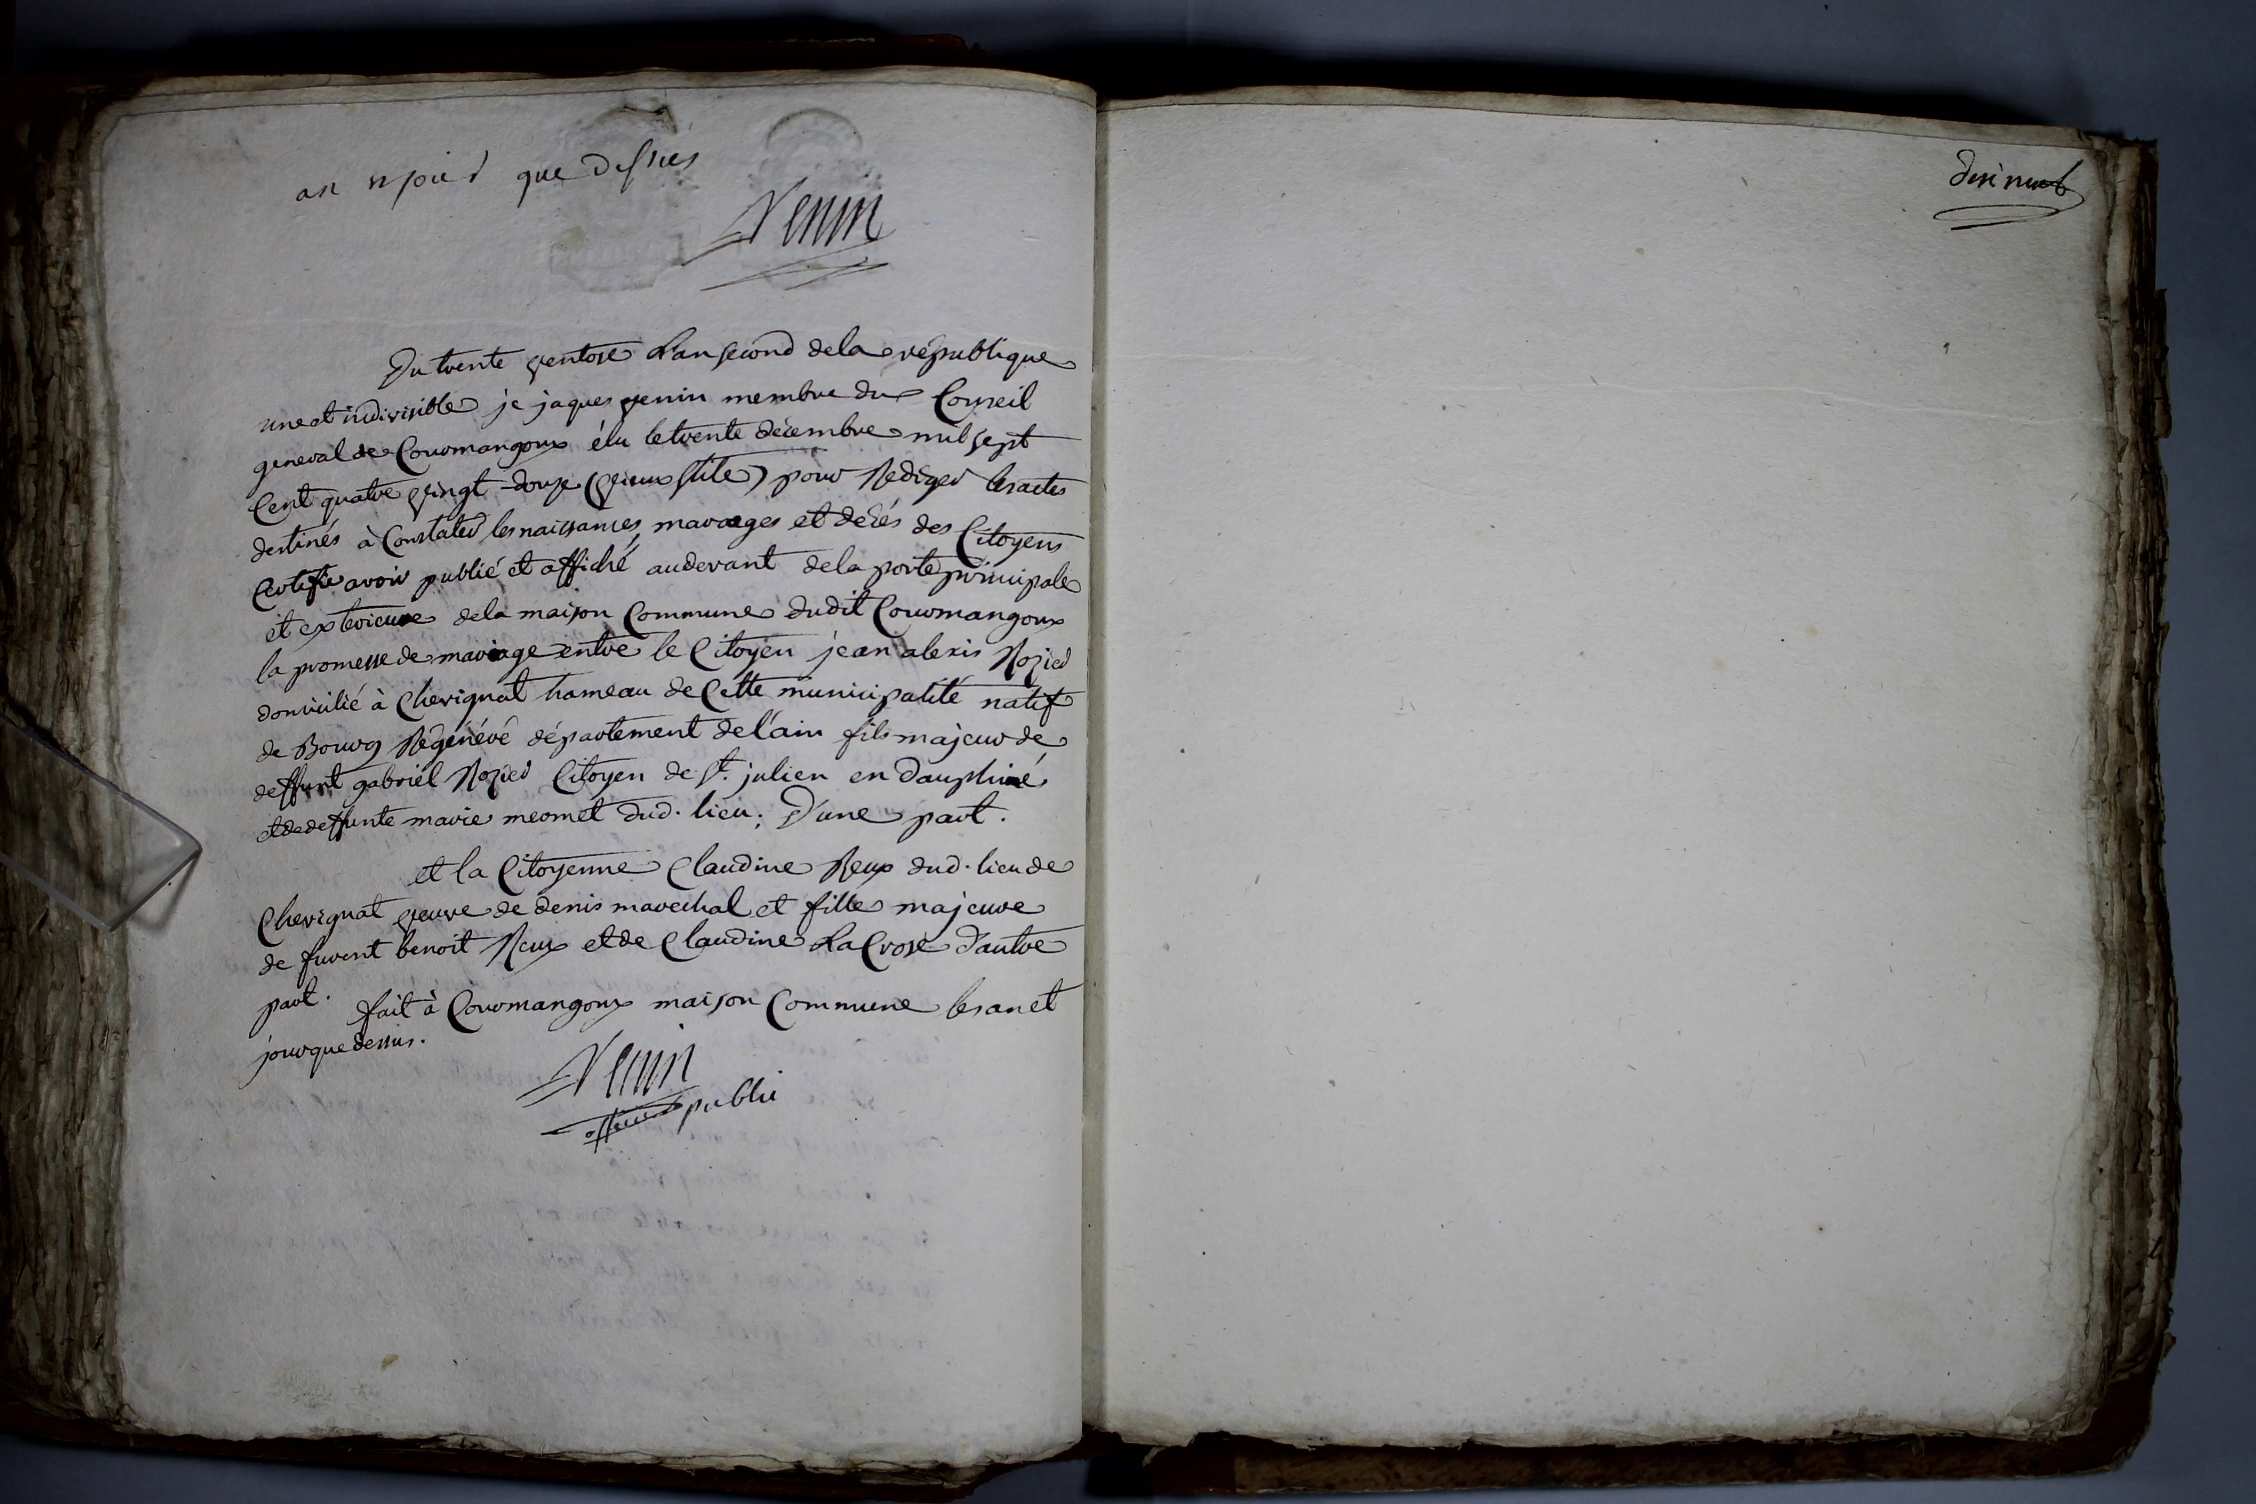 an et jour que dessus
Venin
Du trente ventose L'an second de la république
une et indivisible je jaques venin membre du Conseil
general de Couvmangoux élu le trente décembre mil sept
Cent quatre vingt-douze (vieux stile) pour Rediger les actes
destinés à Constater les naissances, mariages et decés des Citoyens
Certifie avoir publié et affiché au devant de la porte principale
et exterieure de la maison Commune dudit Courmangoux
la promesse de mariage entre le Citoyen jean alexis Rozier
domicilié à Chevignat hameau de Cette municipalité natif
de Bourg Régénéré département de l'ain fils majeur de
deffunt gabriel Rozier Citoyen de St. julien en dauphiné
et de deffunte marie meomet dud. lieu; D'une part.
et la Citoyenne Claudine Reux dud. lieu de
Chevignat veuve de denis marechal et fille majeure
de furent benoit Reux et de Claudine La Crose d'autre
part.
fait à Courmangoux maison Commune les an et
jour que dessus.
Venin
officier public